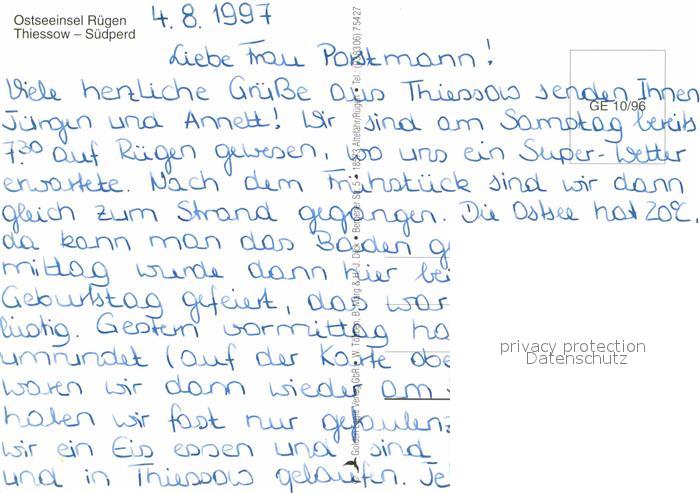 Ostseeinsel Rügen
Thiessow – Südperd
4. 8. 1997
Liebe Frau Portmann!
Viele herzliche Grüße aus Thiessow senden Ihnen
Jürgen und Annett! Wir sind am Samstag bereits
7.30 auf Rügen gewesen, wo uns ein Super-Wetter
erwartete. Nach dem Frühstück sind wir dann
gleich zum Strand gegangen. Die Ostsee hat 20°C,
da kann man das Baden g
mittag wurde dann hier bei
Geburtstag gefeiert, das war
lustig. Gestern vormittag ha
umrundet (auf der Karte obe
waren wir dann wieder am
haben wir fast nur gefaulenz
wir ein Eis essen und sind
und in Thiessow gelaufen. Je
GE 10/96
privacy protection
Datenschutz